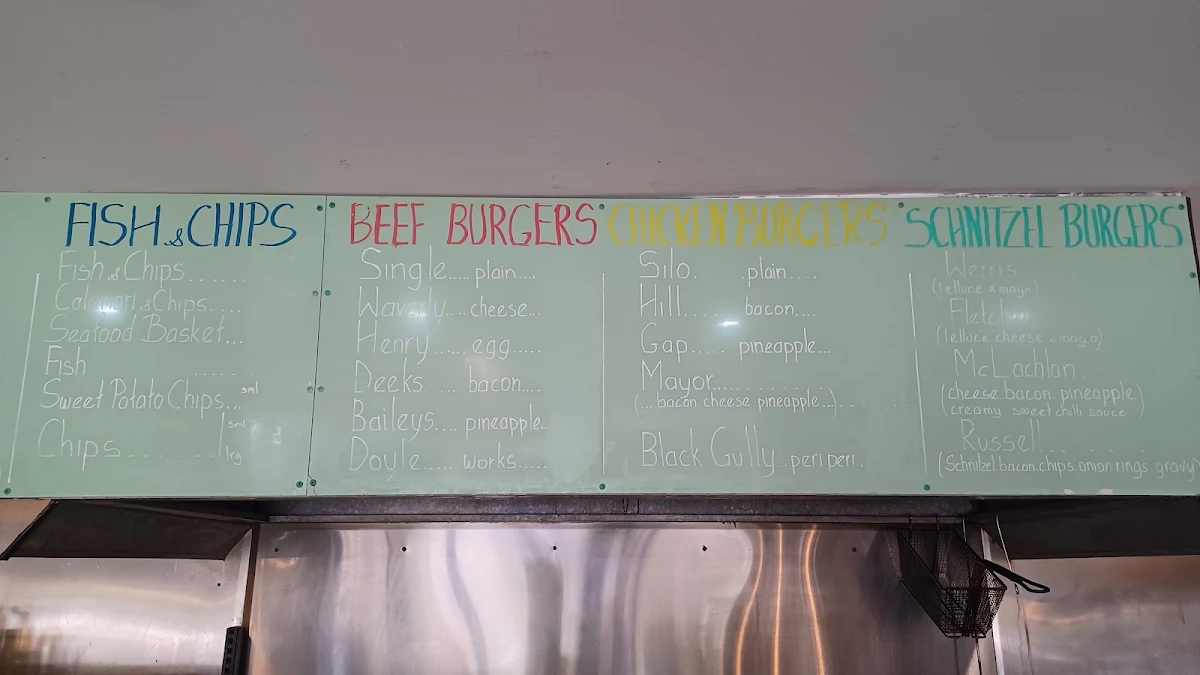 FISH & CHIPS
Fish & Chips......
Calamari & Chips....
Seafood Basket...
Fish .....
Sweet Potato Chips... sml
sml
Chips....... lrg
BEEF BURGERS
Single.... plain....
Waverly... cheese...
Henry..... egg.....
Deeks..... bacon....
Baileys.... pineapple..
Doyle..... works.....
CHICKEN BURGERS
Silo.. .plain....
Hill..... bacon....
Gap..... pineapple...
Mayor...........
(... bacon. cheese pineapple...)...
Black Gully...peri peri..
SCHNITZEL BURGERS
Werris......
(lettuce & mayo)
Fletcher
(lettuce cheese & mayo)
McLachlan....
(cheese bacon. pineapple
creamy sweet chilli sauce)
Russell........
(Schnitzel. bacon. chips. onion rings. gravy)